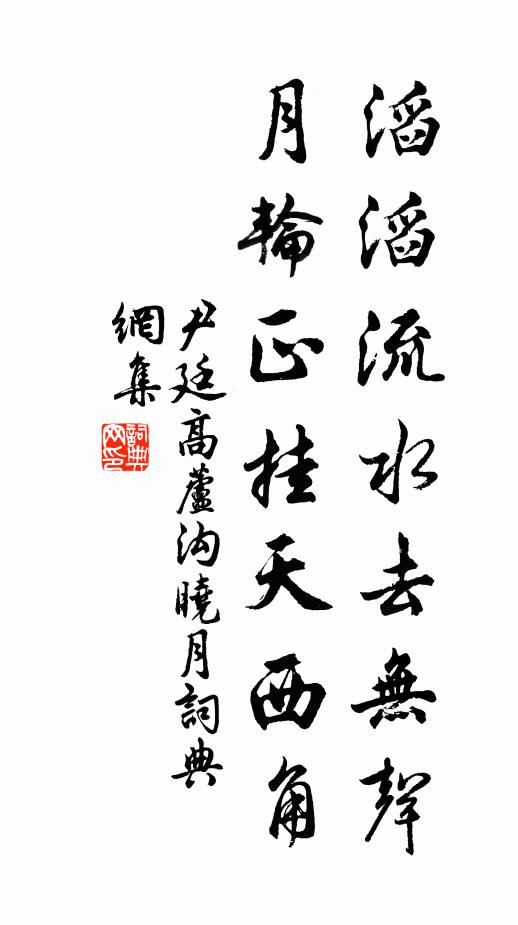 滔滔流水去無聲
月輪正挂天西角
尹廷高蘆沟曉月詞典
網集
詞典
网印